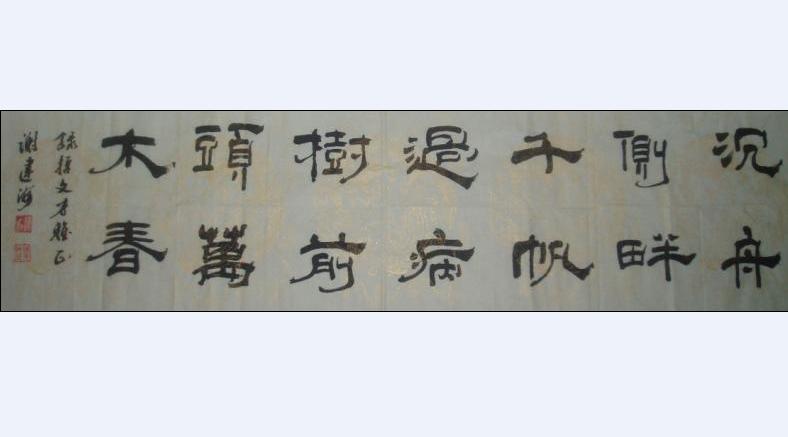 沉舟
側畔
千帆
過病
樹前
頭萬
木春
哲文才雅正
謝建海